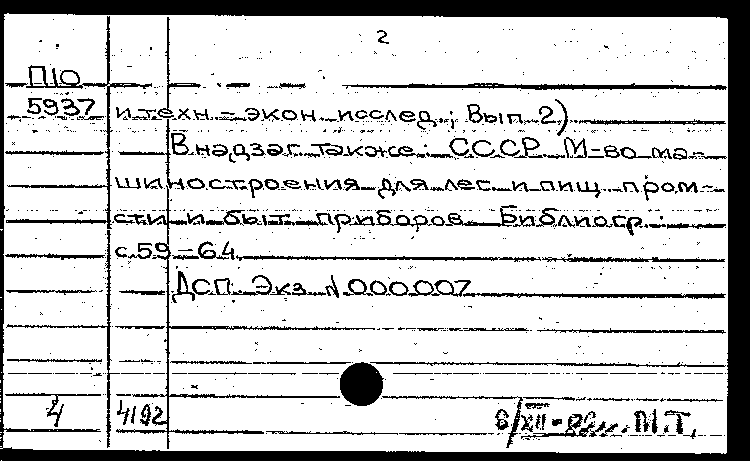 2
П10
5937 и техн.-экон. исслед.; Вып. 2)
В надзаг. также: СССР. М-во ма-
шиностроения для лег. и пищ. пром-
сти и быт. приборов. Библиогр.:
с.59-64.
ДСП. Экз. N000007
4 4192 6/XII- М.Т.